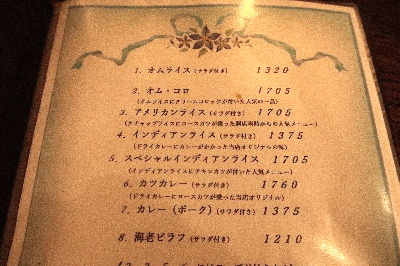 1. オムライス (サラダ付き) 1320
2. オム・コロ 1705
(オムライスにクリームコロッケが付いた人気の一品)
3. アメリカンライス (サラダ付き) 1705
(ケチャップライスにロースカツが乗った開店当時からの人気メニュー)
4. インディアンライス (サラダ付き) 1375
(ドライカレーにカレーがかかった当店オリジナルの味)
5. スペシャルインディアンライス 1705
(インディアンライスにチキンカツが付いた人気メニュー)
6. カツカレー (サラダ付き) 1760
(ドライカレーにロースカツが乗った当店オリジナル)
7. カレー (ポーク) (サラダ付き) 1375
8. 海老ピラフ (サラダ付き) 1210